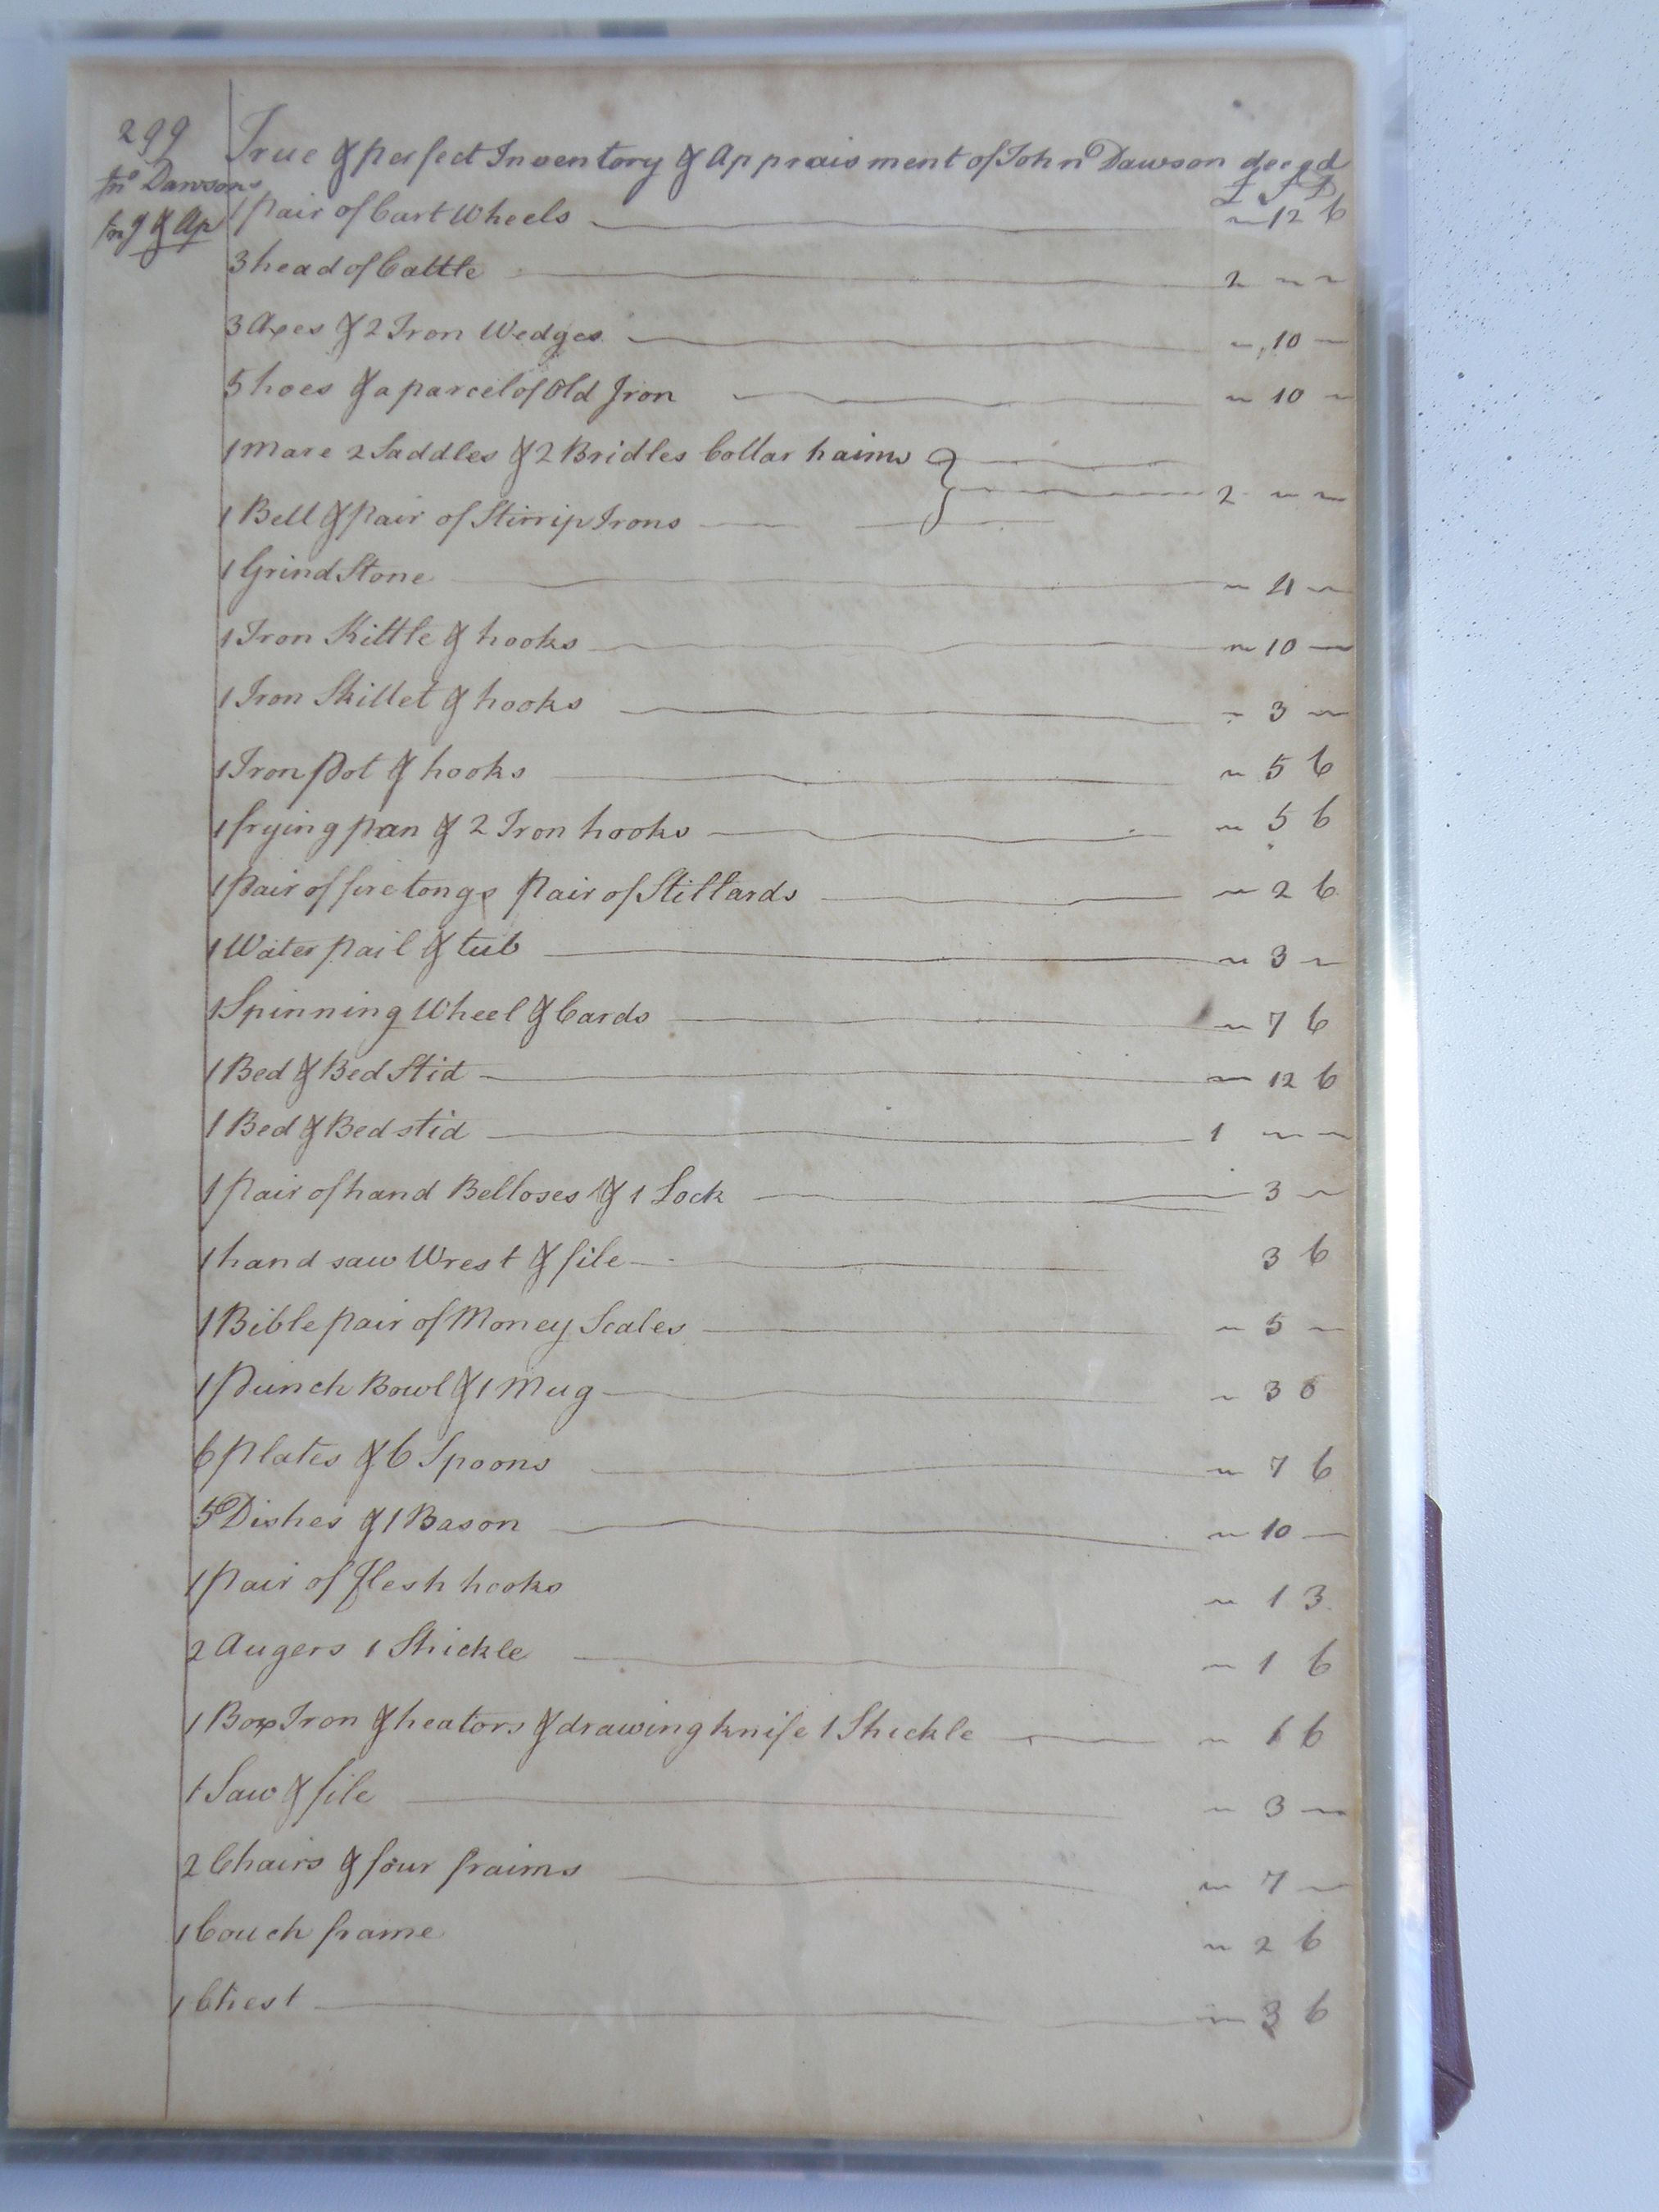 299
Jnº Dawsons
Inv & Ap
True & perfect Inventory & Appraisment of John Dawson decd
£ S D
1 pair of Cart Wheels ~ 12 6
3 head of Cattle 2 ~ ~
3 Axes & 2 Iron Wedges ~ 10 ~
5 hoes & a parcel of Old Iron ~ 10 ~
1 Mare 2 Saddles & 2 Bridles Collar haims }
1 Bell & pair of Stirrip Irons } 2 ~ ~
1 Grind Stone ~ 4 ~
1 Iron Kittle & hooks ~ 10 ~
1 Iron Skillet & hooks ~ 3 ~
1 Iron Pot & hooks ~ 5 6
1 frying pan & 2 Iron hooks ~ 5 6
1 Pair of fire tongs pair of Stillards ~ 2 6
1 Water pail & tub ~ 3 ~
1 Spinning Wheel & Cards ~ 7 6
1 Bed & Bed Stid ~ 12 6
1 Bed & Bed stid 1 ~ ~
1 pair of hand Belloses & 1 Lock 3 ~
1 hand saw Wrest & file 3 6
1 Bible pair of Money Scales ~ 5 ~
1 Punch Bowl & 1 Mug ~ 3 6
6 Plates & 6 Spoons ~ 7 6
5 Dishes & 1 Bason ~ 10 ~
1 Pair of flesh hooks ~ 1 3
2 Augers 1 Shickle ~ 1 6
1 Box Iron & heators & drawing knife 1 Shickle ~ 1 6
1 Saw & file ~ 3 ~
2 Chairs & four fraims ~ 7 ~
1 Couch frame ~ 2 6
1 Chest ~ 3 6